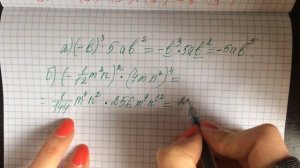 а) (-b)³ · 5ab² = -b³ · 5ab² = -5ab⁵
б) (-1/12 m²n)² · (4mn³)⁴ =
= 1/144 m⁴n² · 256 m⁴n¹² =